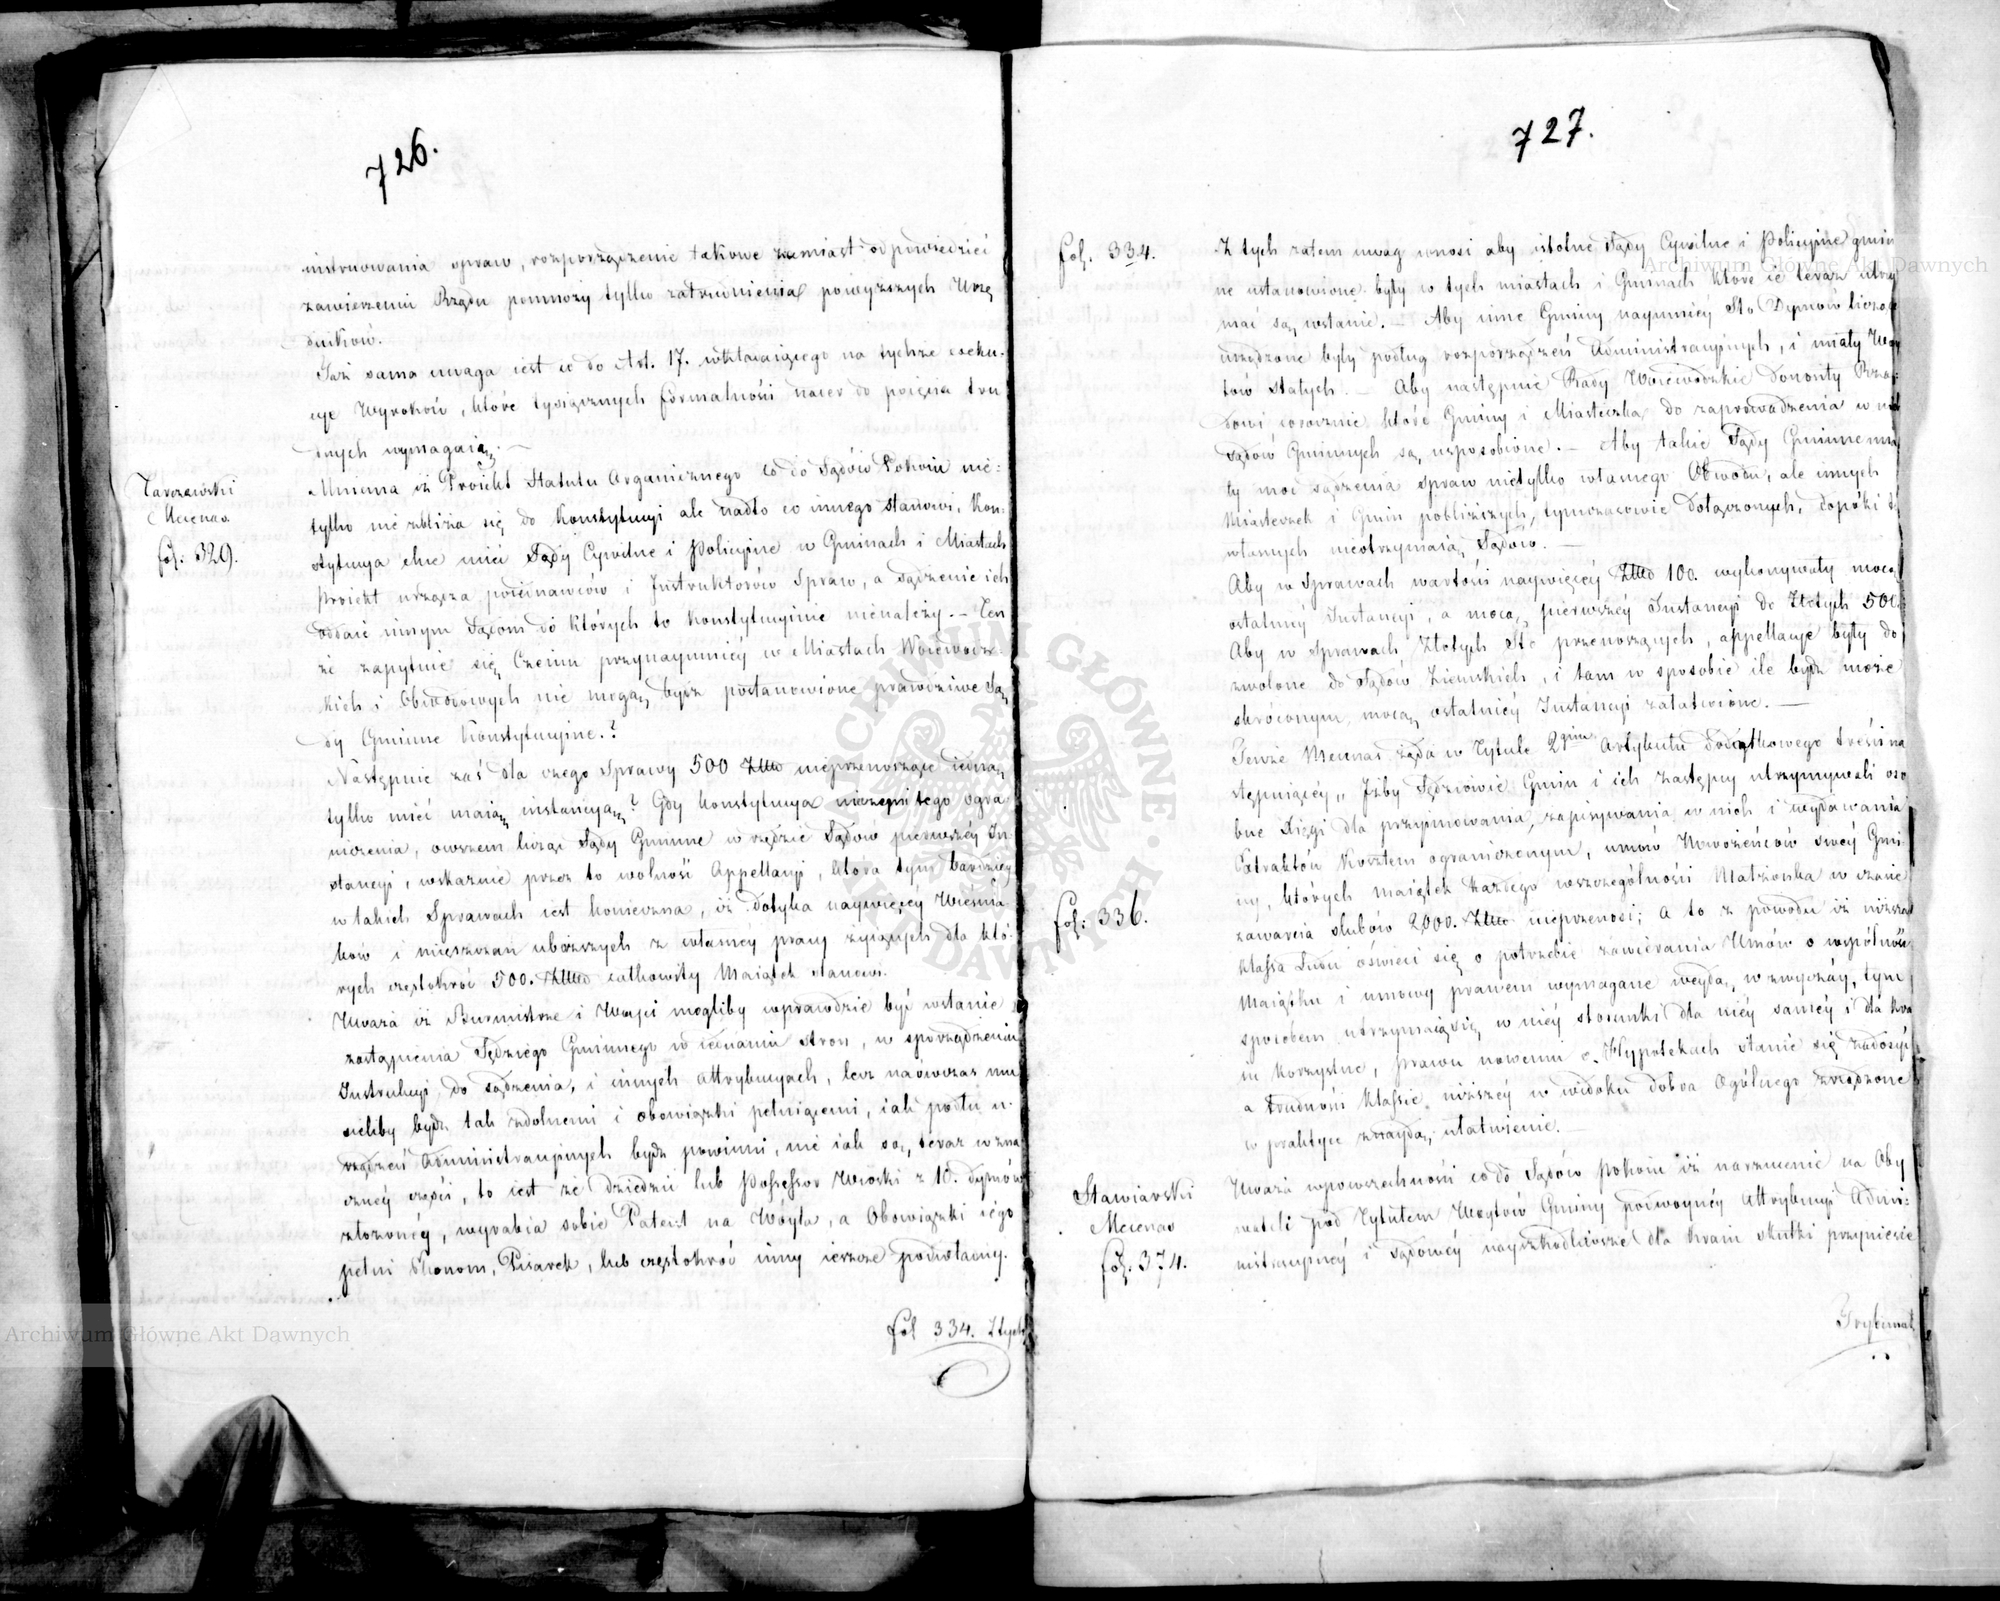 726.
instruowania spraw, rozporządzenie takowe zamiast odpowiedzieć
zamierzeniu Rządu pomnoży tylko zatrudnienia powyższych Urzę
dników.
Taż sama uwaga iest co do Art. 17. wkładaiącego na tychże exeku-
cye Wyroków, które tysiącznych formalności nader do poięcia tru
dnych wymagaią. —
Tarczewski
Mecenas
fol: 329.
Mniema iż Proiekt Statutu Organicznego co do Sądów Pokoiu nie-
tylko nie zbliża się do Konstytucyi ale nadto co innego stanowi, Kon-
stytucya chce mieć Sądy Cywilne i Policyine w Gminach i Miastach
Proiekt urządza poiednawców i Instruktorów Spraw, a sądzenie ich
oddaie innym Sądom do których to konstytucyinie nienależy. — Ten
że zapytuie się Czemu przynaymniéy w Miastach Woiewodz-
kich i Obwodowych nie mogą bydź postanowione prawdziwe Są
dy Gminne Konstytucyine.?
Następnie zaś dla czego Sprawy 500 Złł nieprzenoszące iedną
tylko mieć maią instancyą? Gdy Konstytucya niczem tego ogra
niczenia, owszem licząc Sądy Gminne w rzędzie Sądów pierwszéy In-
stancyi, wskazuie przez to wolność Appellacyi, która tym bardziéy
w takich Sprawach iest konieczna, iż dotyka naywięcéy Wieśnia
ków i mieszczan uboższych z własnéy pracy żyiących dla któ-
rych częstokroć 500. Złł całkowity Maiątek stanowi.
Uważa iż Burmistrze i Wóyci mogliby wprawdzie być wstanie
zastąpienia Sędziego Gminnego w iednaniu stron, w sporządzeniu
Instrukcyi do sądzenia, i innych attrybucyach, lecz naówczas mu
sieliby bydź tak zdolnemi i obowiązki pełniącemi, iak podłu u-
rządzeń Administracyinych bydź powinni, nie iak są teraz w zna
cznéy części, to iest że dziedzic lub Possessor Wioski z 10. dymów
złożonéy, wyrabia sobie Patent na Wóyta, a Obowiązki iego
pełni Ekonom, Pisarek, lub częstokroć inny ieszcze podwładny.
fol 334. Ztych
727.
fol. 334.
Z tych zatem uwag wnosi aby istotne Sądy Cywilne i Policyine gmin
ne ustanowione były w tych miastach i Gminach które ie teraz utrzy
mać są wstanie. — Aby inne Gminy naymniéy Sto Dymów liczące
urządzone były podług rozporządzeń Administracyinych, i miały Wóy
tów stałych. — Aby następnie Rady Woiewódzkie donosiły Rzą-
dowi corocznie które Gminy i Miasteczka do zaprowadzenia w nich
Sądów Gminnych są usposobione. — Aby takie Sądy Gminne mia
ły moc sądzenia spraw nietylko własnego Obwodu, ale innych
Miasteczek i Gmin pobliższych, tymczasowie dołączonych, dopóki
własnych nieotrzymaią Sądów. —
Aby w Sprawach wartości naywięcéy Złł 100. wykonywały mocą
ostatniéy Instancyi, a mocą pierwszéy Instancyi do Złotych 500.
Aby w Sprawach Złotych Sto przenoszących, appellacye były do
zwolone do Sądów Ziemskich, i tam w sposobie ile bydź może
skróconym, mocą ostatniéy Instancyi załatwione. —
fol: 336.
Tenże Mecenas żąda w Tytule 2gim Artykułu dodatkowego treści na
stępuiącéy „ Iżby Sędziowie Gmin i ich zastępcy utrzymywali oso
bne Xięgi dla przyimowania, zapisywania w nich i wydawania
Extraktów Kosztem ograniczonym, umów Nowożeńców swéy Gmi-
ny, których maiątek każdego wszczególności Małżonka w czasie
zawarcia ślubów 2,000. Złł nieprzenosi; a to z powodu iż niższa
klassa Ludu oświeci się o potrzebie zawierania Umów o wspólności
Maiątku i umowy prawem wymagane weydą w zwyczay, tym
sposobem utrzymaią się w niéy stosunki dla niéy saméy i dla kra
iu korzystne, prawu nowemu o Hypotekach stanie się zadosyć
a trudności klassie niższéy w widoku dobra Ogólnego zrządzone
w praktyce znaydą ułatwienie. —
Stawiarski
Mecenas
fol. 374.
Uważa wpowszechności co do Sądów Pokoiu iż narzucenie na Oby
wateli pod Tytułem Woytów Gminy podwóynéy Attrybucyi Admi-
nistracyinéy i sądowéy nayszkodliwsze dla kraiu skutki przyniesie
Trybunał
Archiwum Główne Akt Dawnych
Archiwum Główne Akt Dawnych
ARCHIWUM GŁÓWNE AKT DAWNYCH